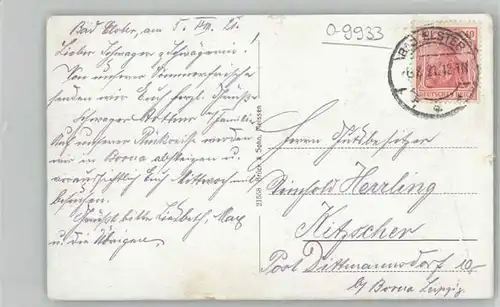 Bad Elster, am 5. VIII. 21.
Lieber Schwager u Schwägerin!
Von unserer Sommerfrische
senden wir Euch herzl. Grüße
Schwager Arthur u Familie
Auf unserer Rückreise werden
wir in Borna absteigen u
voraussichtlich Euch Mittwoch
besuchen.
Grüßt bitte Liesbeth, Max
u die Übrigen.
0-9933
BAD ELSTER
DEUTSCHES REICH
Meissen
Herrn Gutsbesitzer
Reinhold Herrling
Kitzscher
Post Dittmannsdorf 10
b/ Borna Leipzig.